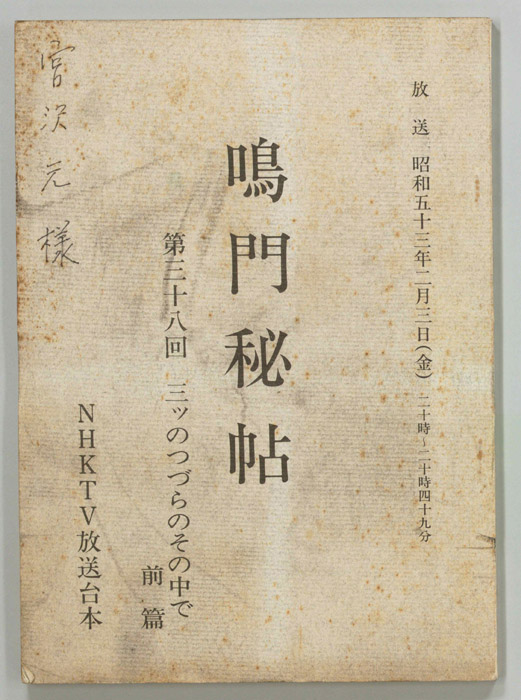 放送 昭和五十三年二月三日(金) 二十時~二十時四十九分
鳴門秘帖
第三十八回 三ッのつづらのその中で
前篇
NHKTV放送台本
宮沢元様